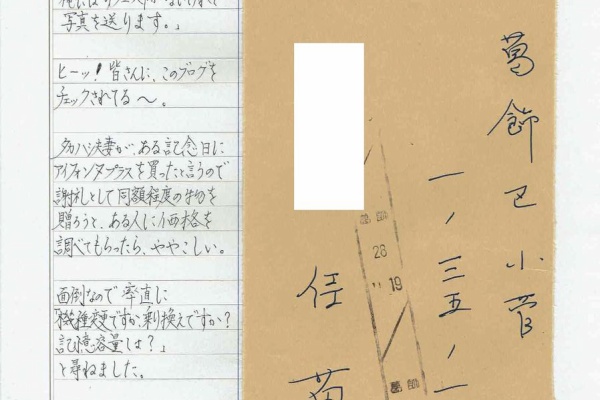 写真を送ります。」
ヒーッ！皆さんに、このブログを
チェックされてる〜。
タカハシ夫妻が、ある記念日に
アイフォン7プラスを買ったと言うので
謝礼として同額程度の物を
贈ろうと、ある人に価格を
調べてもらったら、ややこしい。
面倒なので率直に
「機種変更ですか、乗り換えですか？
記憶容量は？」
と尋ねました。
葛飾区小菅
一ノ三五ノ一
28
11
19